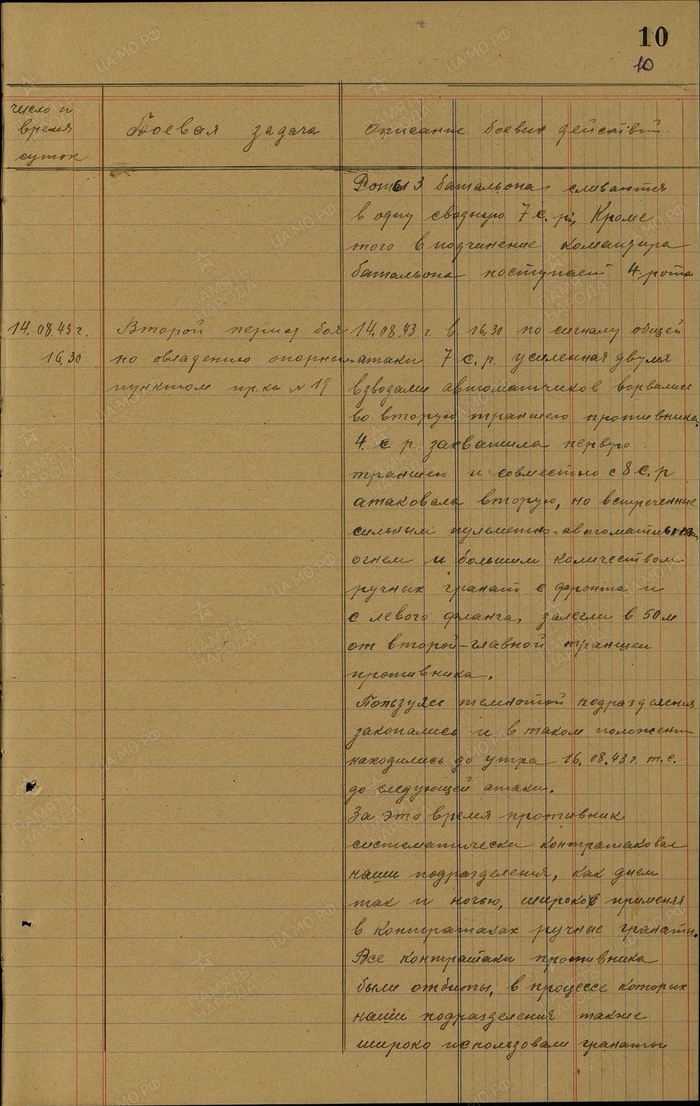 10
10
число и
время
суток
Боевая задача
Описание боевых действий.
Роты 3 батальона сливаются
в одну сводную 7 с.р., Кроме
того в подчинение командира
батальона поступает 4 рота
14.08.43 г.
16.30
Второй период боя
по овладению опорным
пунктом пр-ка № 19
14.08.43 г. в 16.30 по сигналу общей
атаки 7 с.р. усиленная двумя
взводами автоматчиков ворвались
во вторую траншею противника,
4 с р. захватила первую
траншею и совместно с 8 с.р
атаковала вторую, но встреченные
сильным пулеметно-автоматным
огнем и большим количеством
ручных гранат с фронта и
с левого фланга, залегли в 50 м
от второй-главной траншеи
противника.
Пользуясь темнотой подразделения
закопались и в таком положении
находились до утра 16.08.43 г. т.е.
до следующей атаки.
За это время противник
систематически контратаковал
наши подразделения, как днем
так и ночью, широко применяя
в контратаках ручные гранаты.
Все контратаки противника
были отбиты, в процессе которых
наши подразделения также
широко использовали гранаты